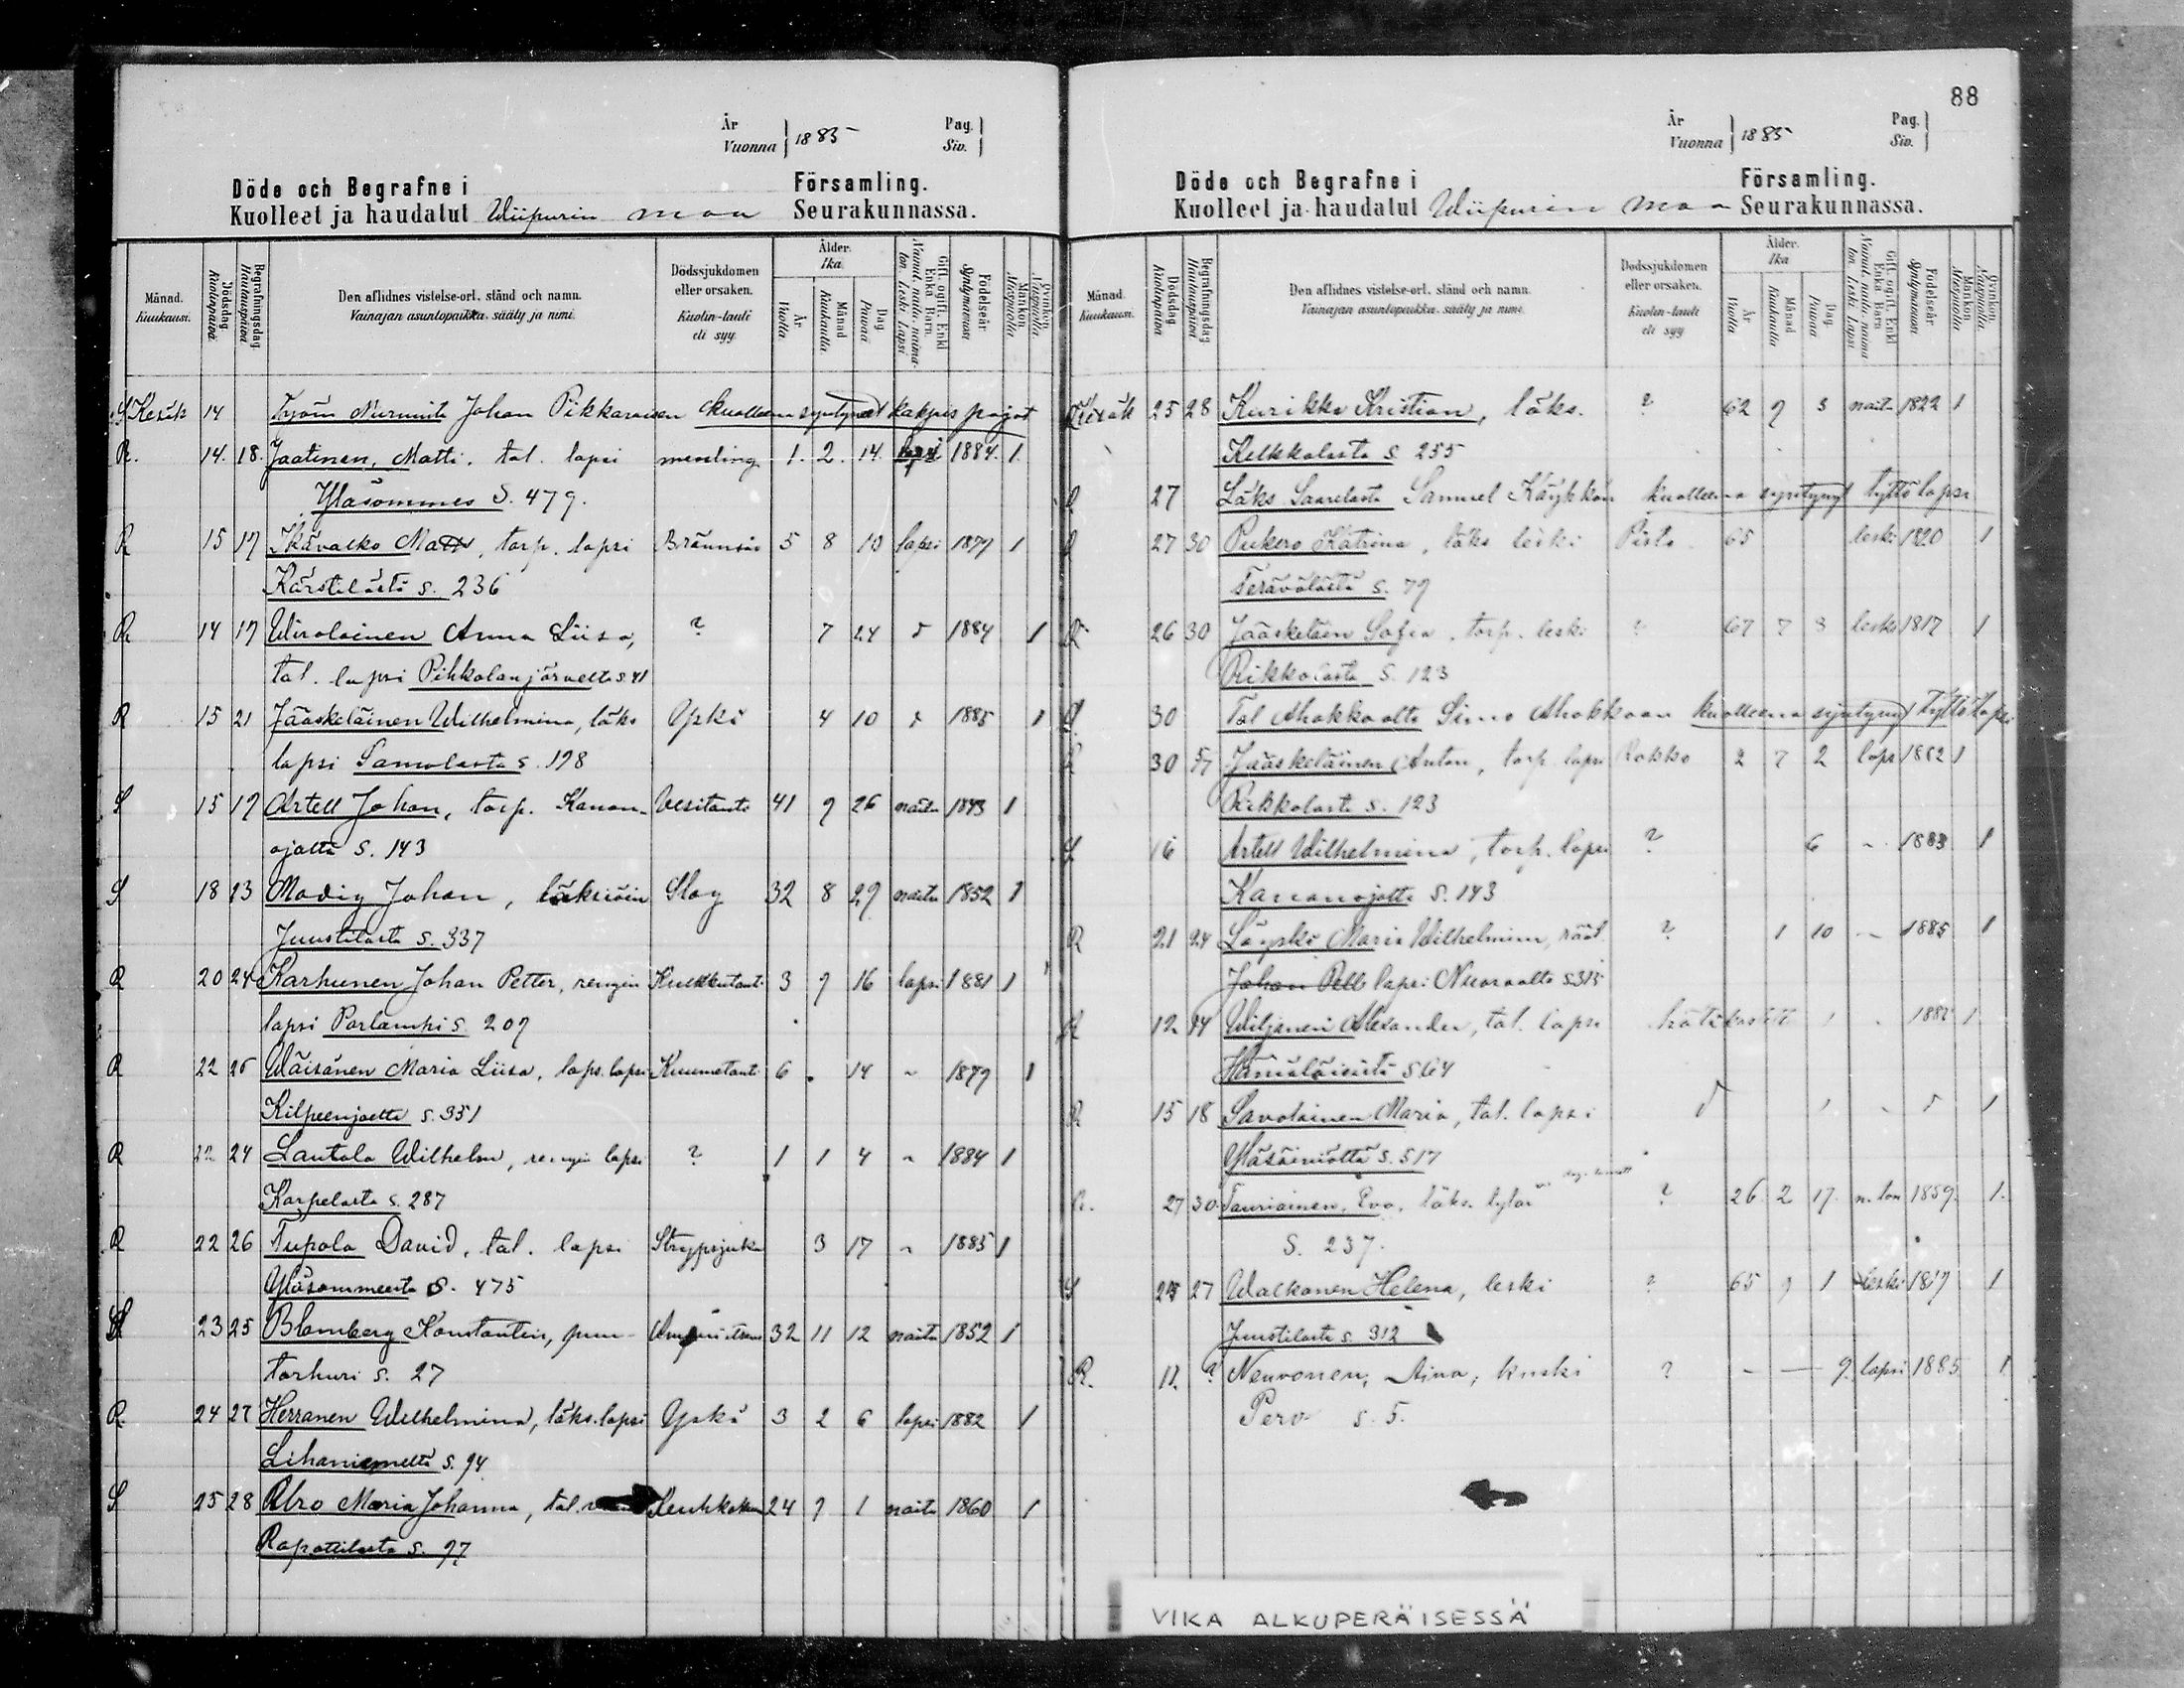 År
Vuonna 1885
Pag.
Siv.
Döde och Begrafne i Församling.
Kuolleet ja haudatut Wiipurin maa Seurakunnassa.
Månad. Kuukausi.
Dödsdag Kuolinpäivä
Begrafningsdag Hautauspäivä
Den aflidnes vistelse-ort, stånd och namn.
Vainajan asuntopaikka, sääty ja nimi.
Dödssjukdomen eller orsaken.
Kuolin-tauti eli syy
Ålder. Ikä
År Vuotta
Månad Kuukautta
Dag Päivää
Gift, ogift, Enkl. Enka Barn.
Födelseår Syntymävuosi
Mankön. Miespuolia
Qvinkön.
S Kesäk 14 Johan Pikkaraisen kuolleena syntyneet kaksois pojat
R. 14. 18. Jaatinen, Matti. tal. lapsi messling 1. 2. 14. lapsi 1884. 1.
Yläsommes S. 479.
R 15 17 Ikävalko Matts, torp. lapsi 5 8 10 lapsi 1879 1
Kärstilästä s. 236
R 14 17 Wirolainen Anna Liisa, ? 7 24 1884 1
tal. lapsi Pihkalanjärveltä s. 41
R 15 21 Jääskeläinen Wilhelmina, läks Yskä 4 10 1885 1
lapsi Samolasta s. 198
S 15 19 Artell Johan, torp. Kanan- Vesitauti 41 9 26 naitu 1843 1
ojalta S. 143
S 18 23 Modig Johan, läksiäin Slag 32 8 29 naitu 1852 1
Juustilasta s. 337
R 20 24 Karhunen Johan Petter, rengin Kurkkutauti 3 9 16 lapsi 1881 1
lapsi Porlampi s. 209
R 22 26 Wäisänen Maria Liisa, laps. lapsi Kuumetauti 6 14 1879 1
Kilpeenjoelta s. 351
R 22 24 Lautala Wilhelm, rengin lapsi ? 1 1 4 1884 1
Karpelasta s. 287
R 22 26 Tupola David, tal. lapsi Strypsjuka 3 17 1885 1
Yläsommeesta S. 475
S 23 25 Blomberg Konstantin, puu- 32 11 12 naitu 1852 1
tarhuri s. 27
R 24 27 Herranen Wilhelmina, läks. lapsi Yskä 3 2 6 lapsi 1882 1
Lihaniemeltä s. 94
S 25 28 Maria Johanna, tal. 24 9 1 naitu 1860 1
Rapattilasta s. 97
88
År
Vuonna 1885
Pag.
Siv.
Döde och Begrafne i Församling.
Kuolleet ja haudatut Wiipurin maa Seurakunnassa.
Månad. Kuukausi.
Dödsdag Kuolinpäivä
Begrafningsdag Hautauspäivä
Den aflidnes vistelse-ort, stånd och namn.
Vainajan asuntopaikka, sääty ja nimi.
Dödssjukdomen eller orsaken.
Kuolin-tauti eli syy
Ålder. Ikä
År Vuotta
Månad Kuukautta
Dag Päivää
Gift, ogift, Enkl. Enka Barn
Födelseår Syntymävuosi
Mankön Miespuolia
Qvinkön.
Kesäk 25 28 Kurikka Kristian, läks. ? 62 9 3 naitu 1822 1
Kelkkalasta s. 255
27 Läks Saarelasta Samuel Käyhkön kuolleena syntynyt tyttölapsi
27 30 Pukero Katrina, läks leski Pisto 65 leski 1820 1
Terävälästä s. 79
R 26 30 Jääskeläin Sofia, torp. leski ? 67 7 3 leski 1817 1
Rikkolasta S. 123
30 Tal Ahokkaalta Simo Ahokkaan kuolleena syntynyt tyttölapsi
30 5/7 Jääskeläinen Anton, torp. lapsi Rokko 2 7 2 laps 1882 1
Rikkolasta s. 123
16 Artell Wilhelmina, torp. lapsi ? 6 1883 1
Kananojalta S. 143
R 21 24 Läyski Maria Wilhelmina, räät. ? 1 10 1885 1
Johan Pell lapsi Nuoraalta s. 315
12 14 Wiljanen Alexander, tal. lapsi hätäkastett 1 1885 1
Hämäläisestä s. 64
R 15 18 Savolainen Maria, tal. lapsi 1 1
S. 517
27 30. Tauriainen, Eva, läks. tytär ? 26 2 17. n. ton 1859. 1.
S. 237.
S 25 27 Walkonen Helena, leski ? 65 9 1 leski 1819 1
Juustilasta s. 312
R. 11. ? Neuvonen, Aina, kuski ? - — 9. lapsi 1885 1
Pero s. 5.
VIKA ALKUPERÄISESSÄ